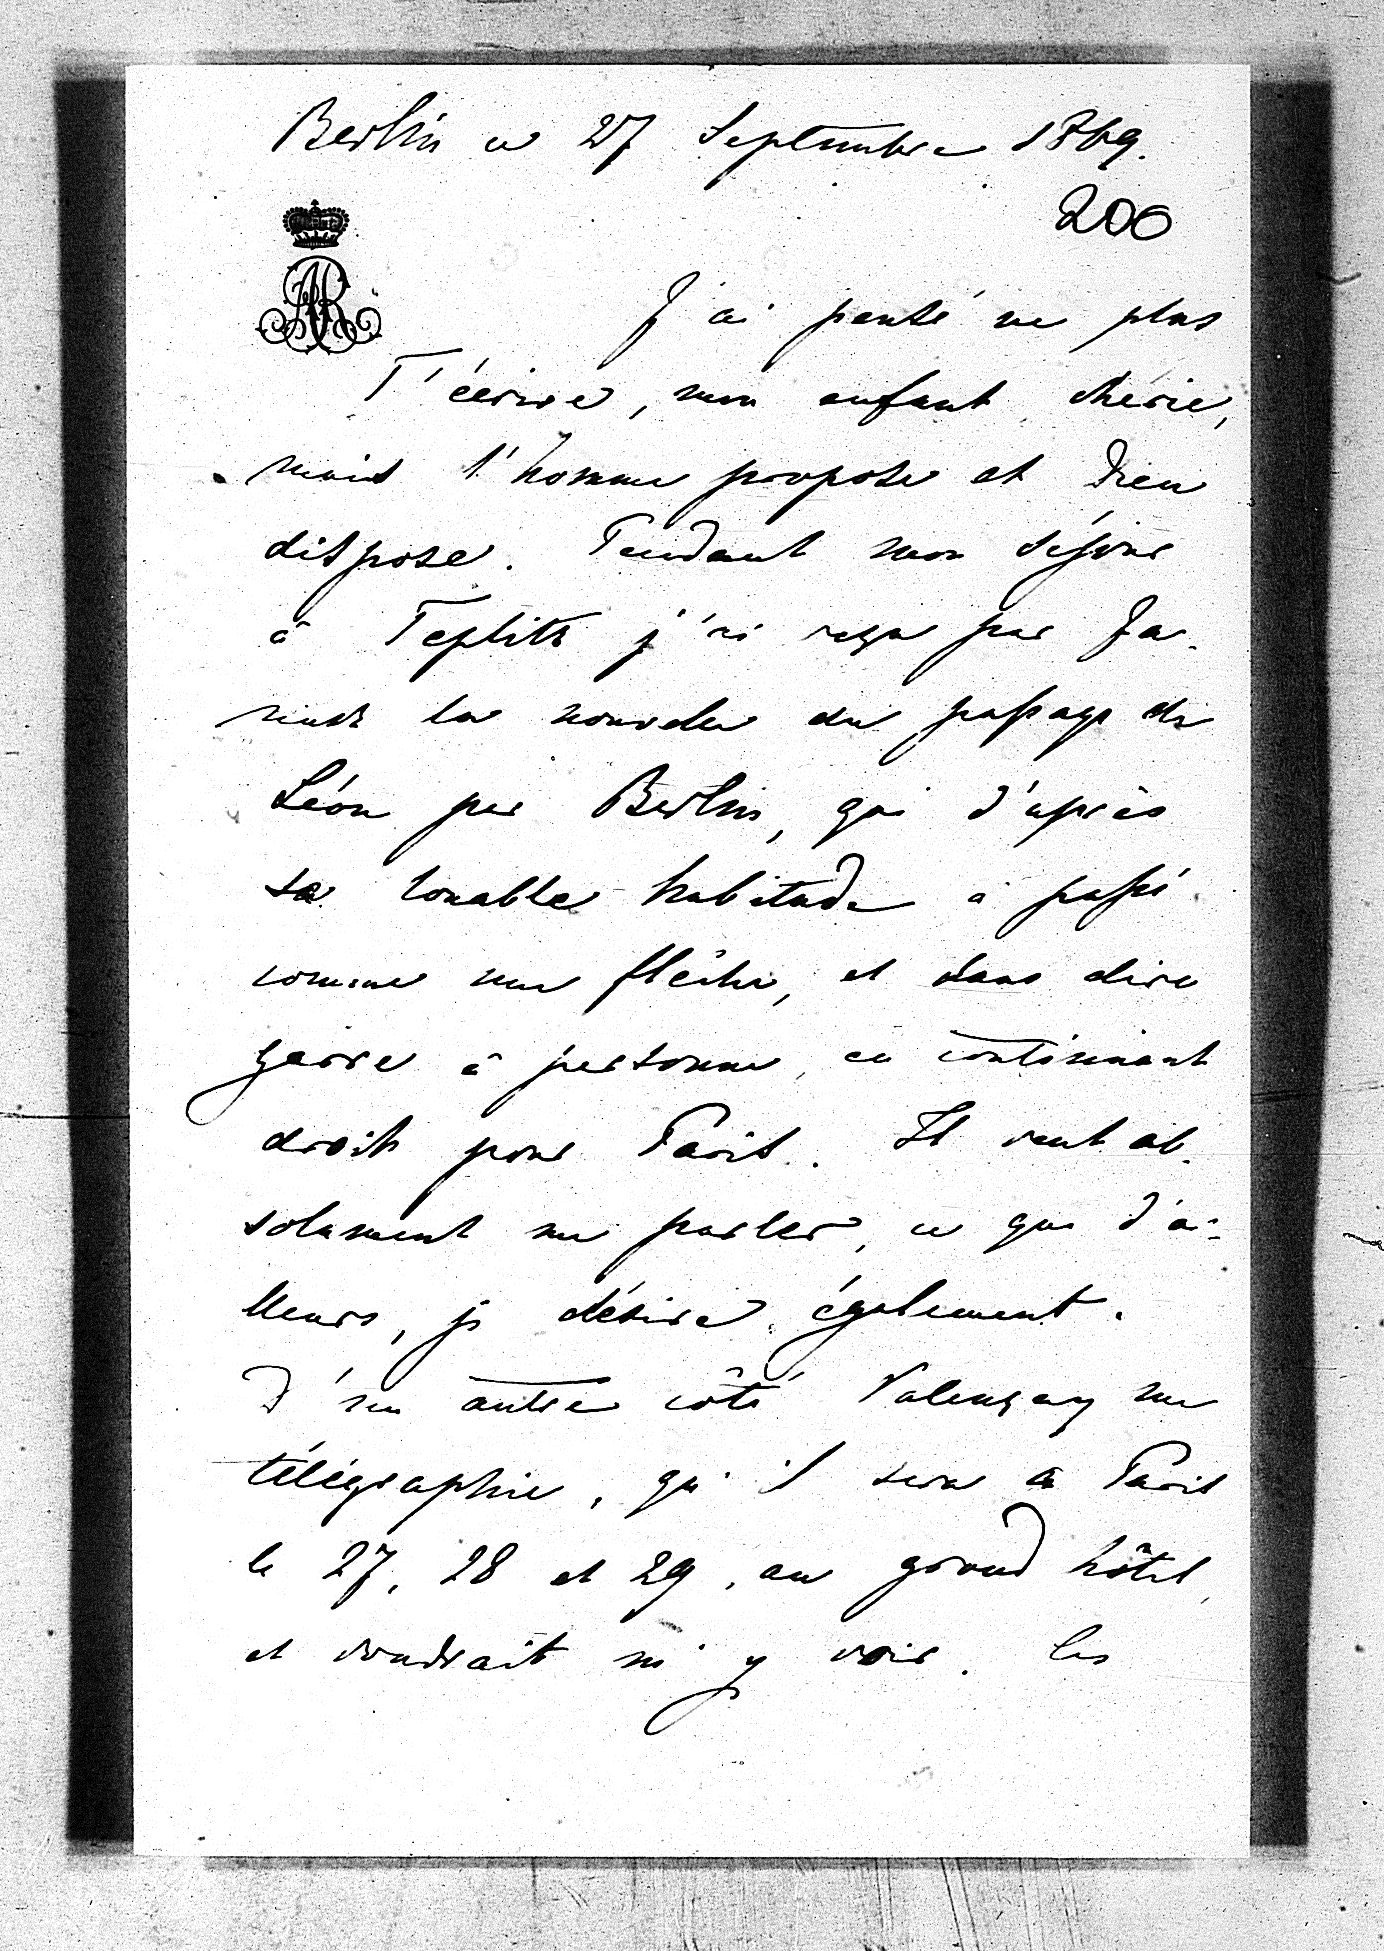 Berlin ce 27 Septembre 1869.
200
AR
J'ai pensé ne plus
T'écrire, mon enfant chérie,
mais l'homme propose et Dieu
dispose. Pendant mon séjour
à Teplitz j'ai reçu par
la nouvelle du passage de
Léon par Berlin, qui d'après
sa louable habitude a passé
comme une flêche, et sans dire
garre à personne, en continuant
droit pour Paris. Il veut ab-
solument me parler, ce que d'ai-
lleurs, je désire également.
D'un autre côté Valençay me
télégraphie, qu'il sera à Paris
le 27, 28 et 29, au grand hôtel,
et voudrait m'y voir. Les